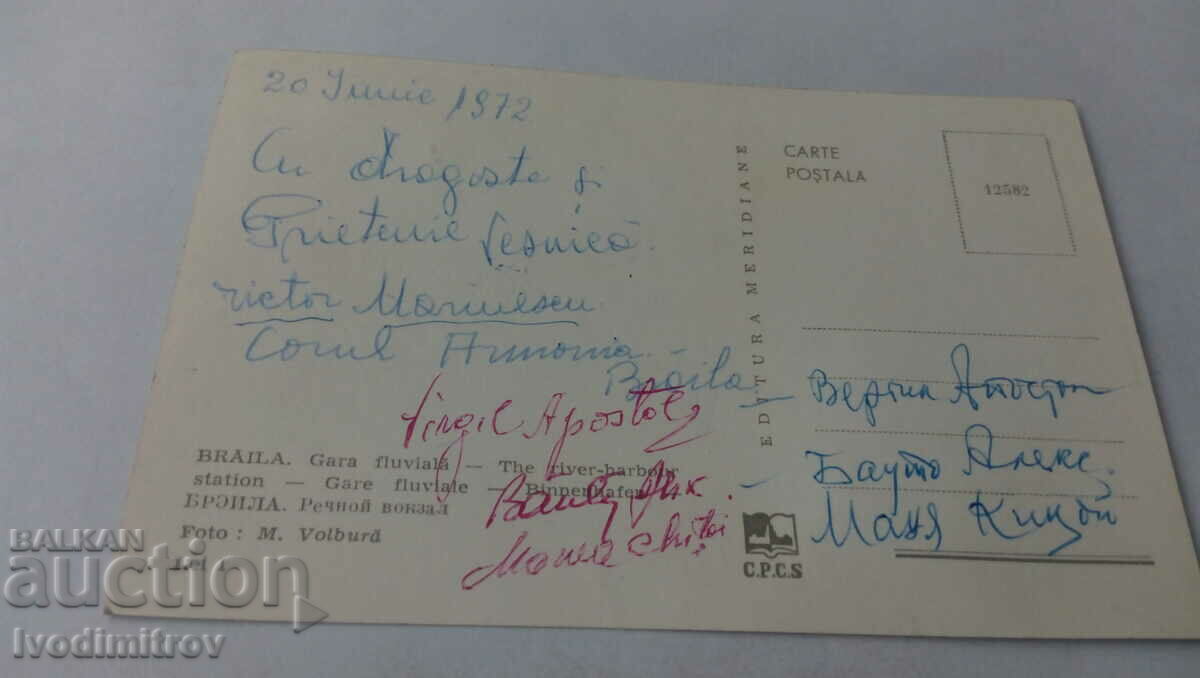 20 Iunie 1972
Cu dragoste și
Prietenie Veșnică.
Victor Marinescu
Corul Armonia -
Brăila
Virgil Apostol
Manea Chițoi
BRĂILA. Gara fluvială — The river-harbour
station — Gare fluviale — Binnenhafen
БРЭИЛА. Речной вокзал
Foto : M. Volbură
Lei
EDITURA MERIDIANE
CARTE
POȘTALA
12582
Апостол
Бауто Алекс.
Маня
C.P.C.S
BALKAN
auction
Ivodimitrov